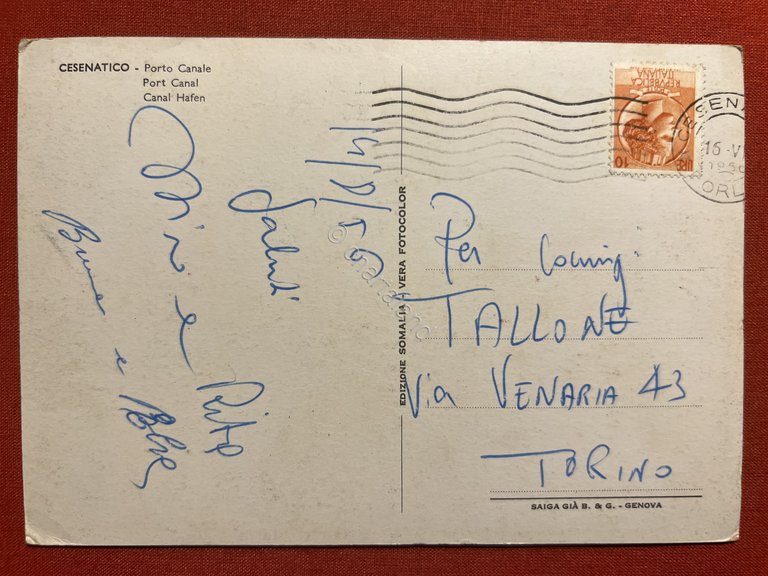 CESENATICO - Porto Canale
Port Canal
Canal Hafen
14/8/56
Saluti
e Rita
Bruna e
EDIZIONE SOMALIA VERA FOTOCOLOR
REPVBBLICA
ITALIANA
LIRE 10
1956
Per
TALLONE
Via VENARIA 43
TORINO
SAIGA GIÀ B. & G. - GENOVA